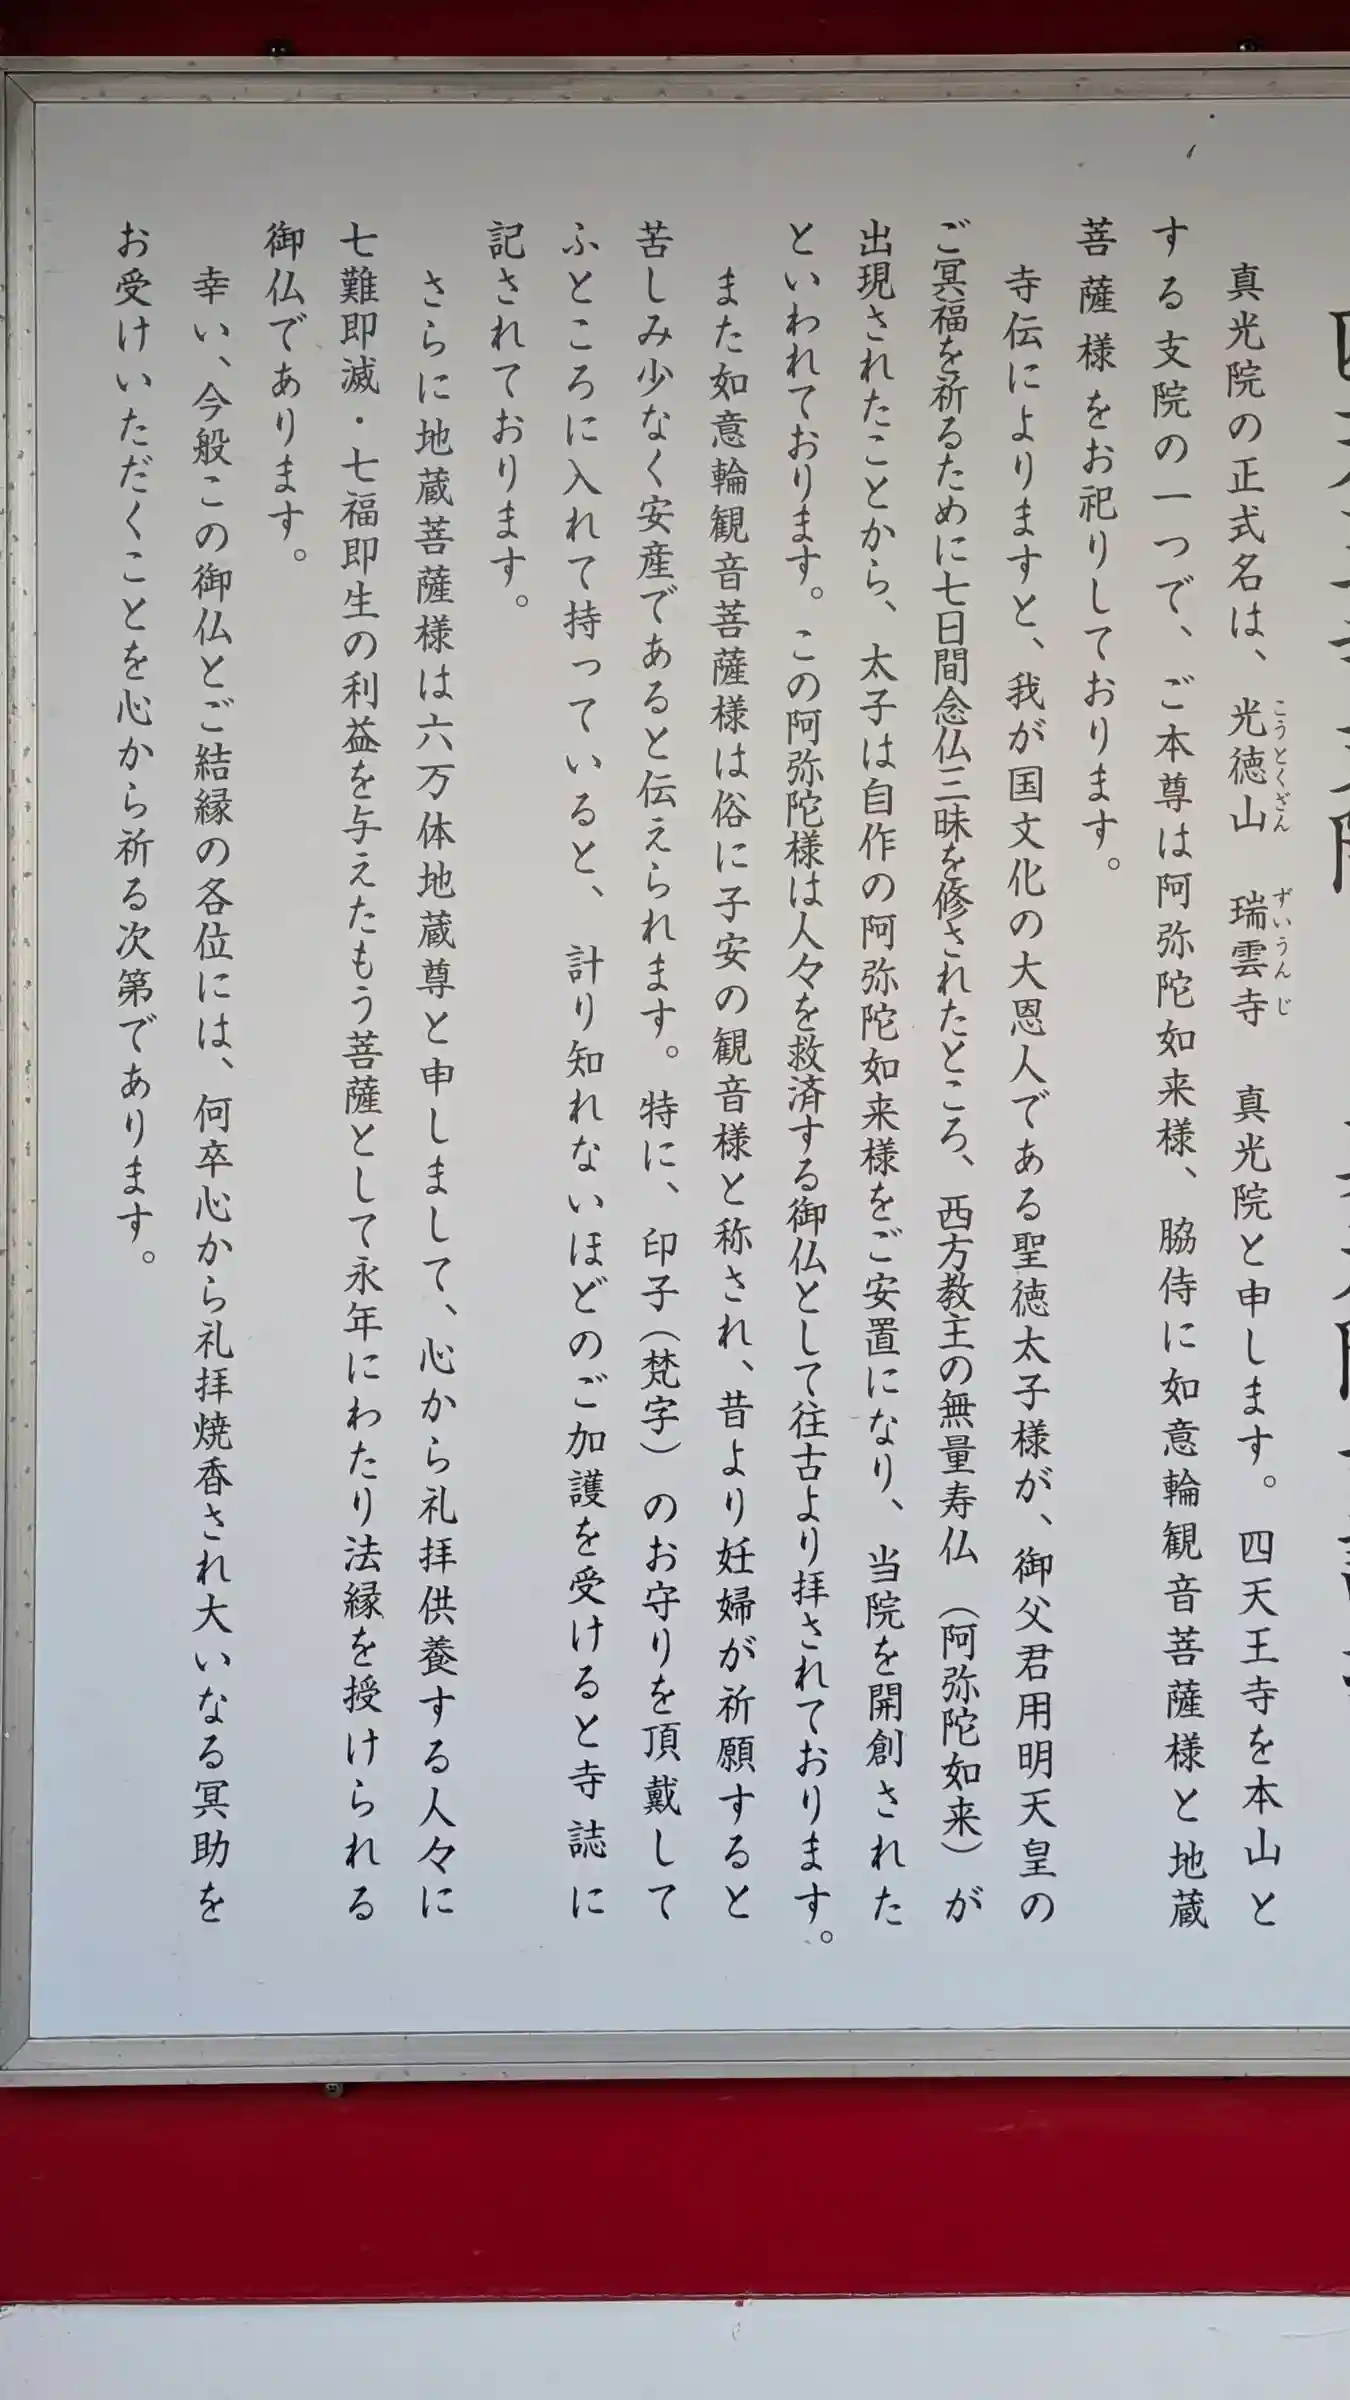 真光院の正式名は、光徳山　瑞雲寺　真光院と申します。四天王寺を本山と
こうとくざん　ずいうんじ
する支院の一つで、ご本尊は阿弥陀如来様、脇侍に如意輪観音菩薩様と地蔵
菩薩様をお祀りしております。
寺伝によりますと、我が国文化の大恩人である聖徳太子様が、御父君用明天皇の
ご冥福を祈るために七日間念仏三昧を修されたところ、西方教主の無量寿仏（阿弥陀如来）が
出現されたことから、太子は自作の阿弥陀如来様をご安置になり、当院を開創された
といわれております。この阿弥陀様は人々を救済する御仏として往古より拝されております。
また如意輪観音菩薩様は俗に子安の観音様と称され、昔より妊婦が祈願すると
苦しみ少なく安産であると伝えられます。特に、印子（梵字）のお守りを頂戴して
ふところに入れて持っていると、計り知れないほどのご加護を受けると寺誌に
記されております。
さらに地蔵菩薩様は六万体地蔵尊と申しまして、心から礼拝供養する人々に
七難即滅・七福即生の利益を与えたもう菩薩として永年にわたり法縁を授けられる
御仏であります。
幸い、今般この御仏とご結縁の各位には、何卒心から礼拝焼香され大いなる冥助を
お受けいただくことを心から祈る次第であります。